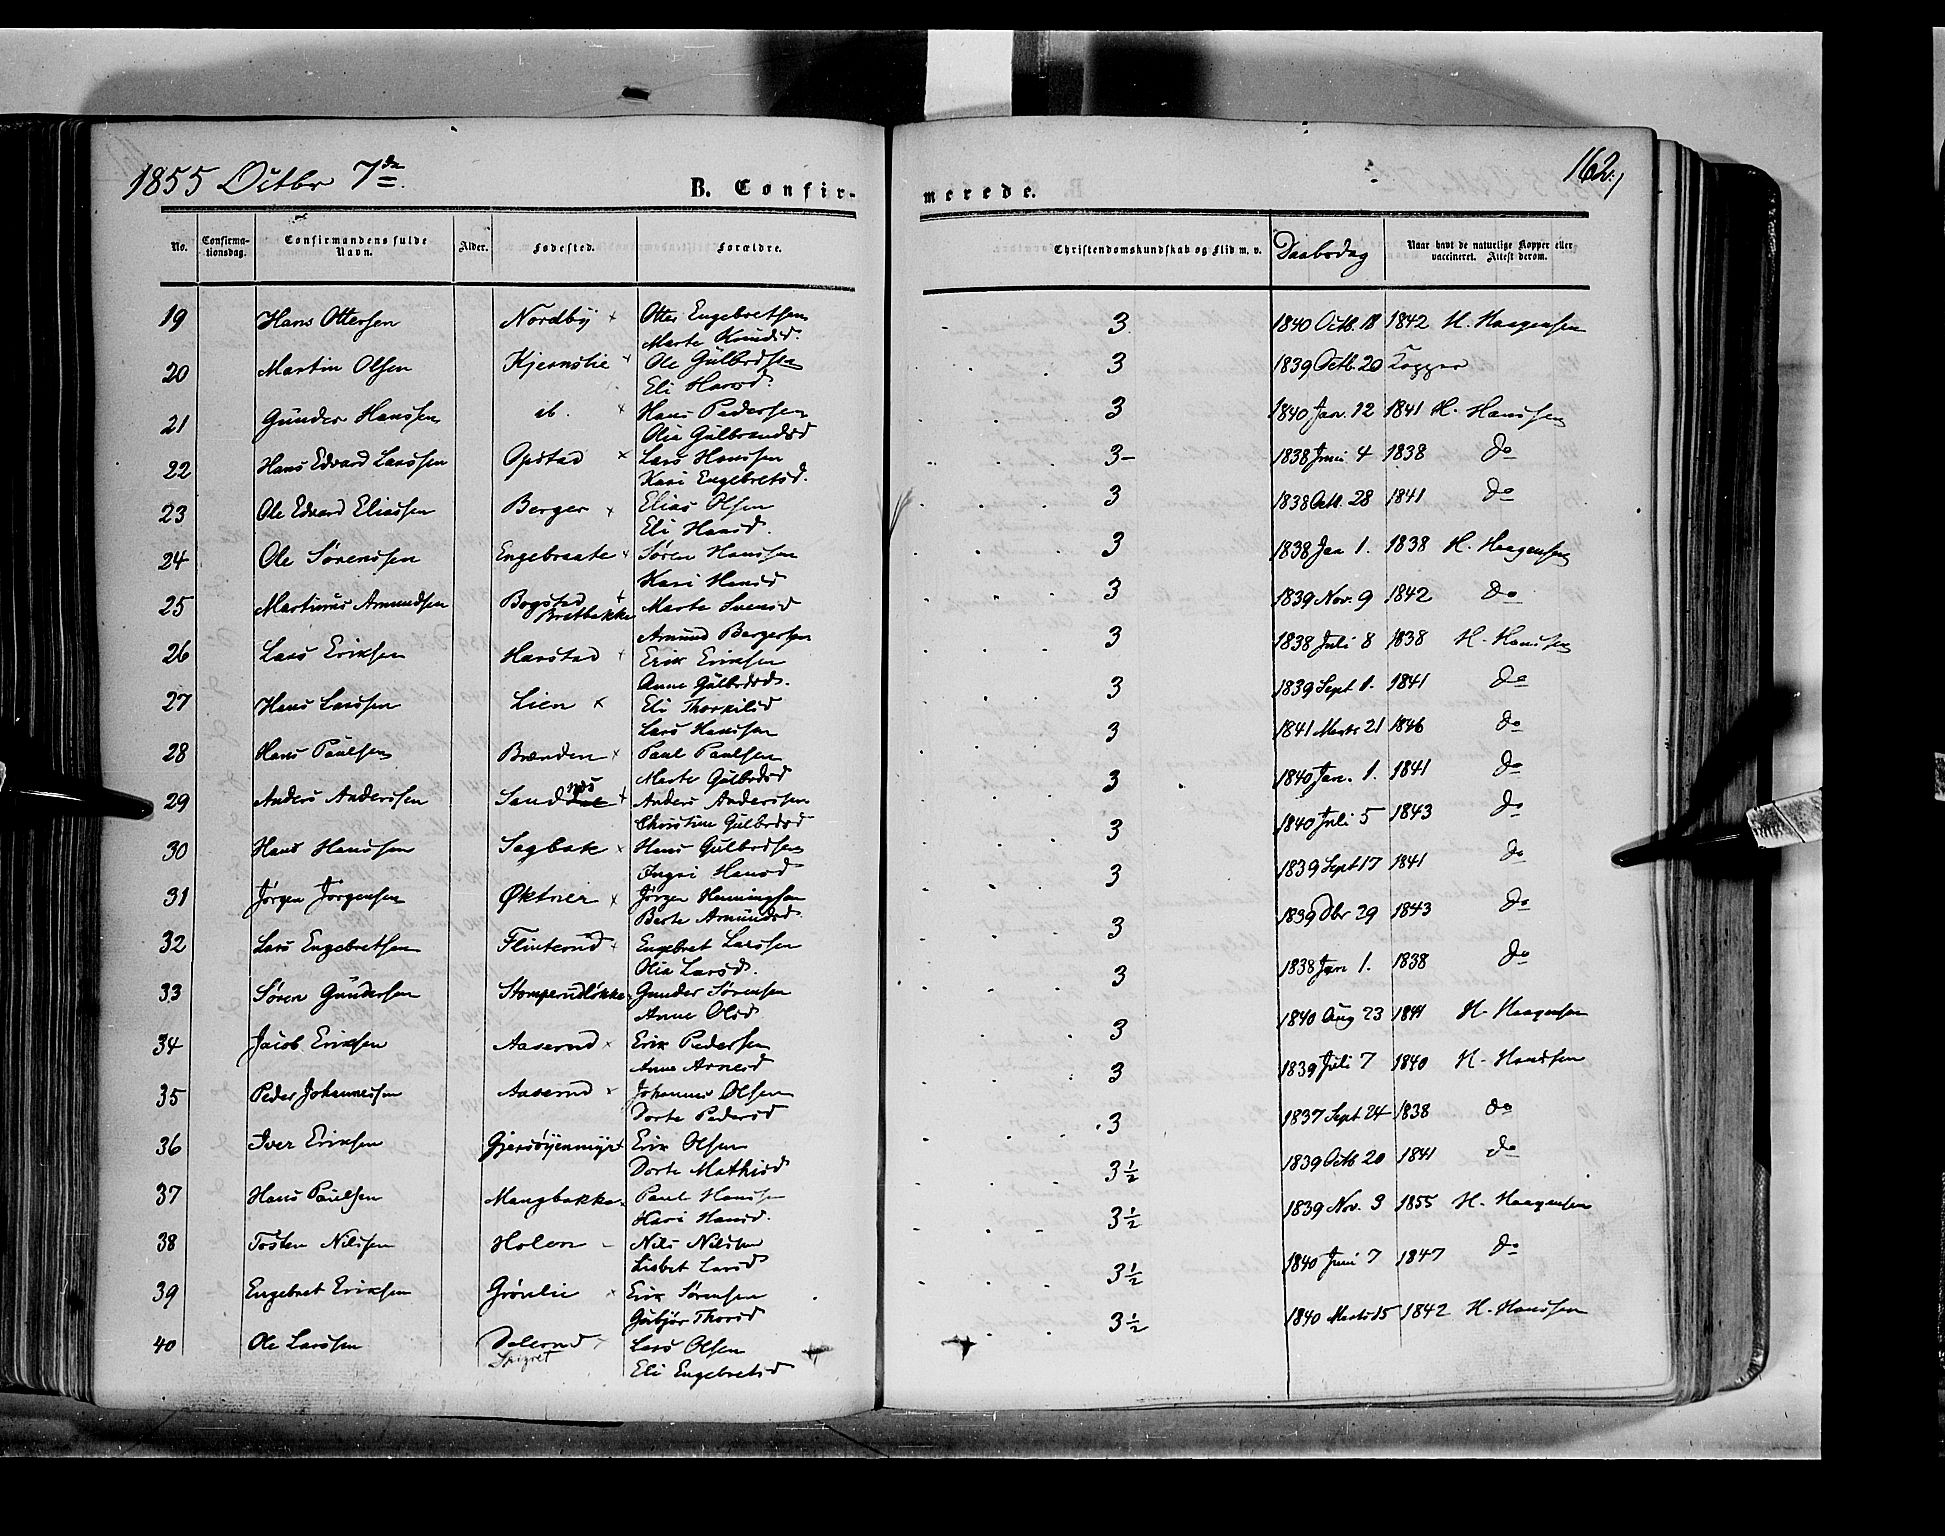 1855 Octbr 7de
162
B. Confirmerede.
No. Confirmationsdag. Confirmandens fulde Navn. Alder. Fødested. Forældre. Christendomskundskab og Flid m. v. Daabsdag Naar havt de naturlige Kopper eller vaccineret. Attest derom.
19 Hans Ottersen Nordbÿ × Otter Engebretsen 3 1840 Octb. 18 1842 H. Haagensen
Marte Knudsd.
20 Martin Olsen Kjernslie Ole Gulbrdsen 3 1839 Octb. 20 Kopper
Eli Hansd.
21 Gunder Hanssen ib. × Hans Pedersen 3 1840 Jan. 12 1841 H. Hanssen
Olia Gulbrandsd
22 Hans Edvard Larssen Opstad × Lars Hanssen 3- 1838 Juni 4 1838 do
Kari Engebretsd.
23 Ole Edvard Eliassen Berger × Elias Olsen 3 1838 Octb. 28 1841 do
Eli Hansd.
24 Ole Sørenssen Engebraate × Søren Hanssen 3 1838 Jan 1. 1838 H. Haagensen
Kari Hansd
25 Martinus Amundsen Bogstad Bratbakke Marte Svensd 3 1839 Nov. 9 1842 do
Amund Bergersen
26 Lars Eriksen Harstad × Erik Eriksen 3 1838 Juli 8 1838 H. Hanssen
Anne Gulbrdsd.
27 Hans Larssen Lien × Eli Thorkilsd 3 1839 Sept 1. 1841 do
Lars Hanssen
28 Hans Paulsen Brænden × Paul Paulsen 3 1841 Marts 21 1846 do
Marte Gulbrdsd
29 Anders Anderssen Sand × Anders Anderssen 3 1840 Jan. 1. 1841 do
Christine Gulbrdsd
30 Hans Hanssen Sagbak × Hans Gulbrdsen 3 1840 Juli 5 1843 do
Ingri Hansd
31 Jørgen Jørgensen Øktner × Jørgen Henningsen 3 1839 Sept 17 1841 do
Berte Amundsd.
32 Lars Engebretsen Flinterud × Engebret Larssen 3 1839 Dbr 29 1843 do
Olia Larsd.
33 Søren Gundersen Stomperudløkke Gunder Sørensen 3 1838 Jan 1. 1838 do
Anne Olsd
34 Jacob Eriksen Aaserud × Erik Pedersen 3 1840 Aug 23 1841 H. Haagensen
Anne Arnesd
35 Peder Johannessen Aaserud × Johannes Olsen 3 1839 Juli 7 1840 H. Hanssen
Dorte Pedersd
36 Iver Eriksen Gjersöÿenmÿr × Erik Olsen 3 1837 Sept 24 1838 do
Dorte Mathisd
37 Hans Paulsen Mangbakken Paul Hanssen 3½ 1839 Octb 20 1841 do
Kari Hansd.
38 Tosten Nilssen Holen Nils Nilssen 3½ 1839 Nov. 3 1855 H. Haagensen
Lisbet Larsd
39 Engebret Eriksen Grönlie × Erik Sørensen 3½ 1840 Juni 7 1847 do
Gubjør Thorsd
40 Ole Larssen Dalerud Lars Olsen 3½ 1840 Marts 15 1842 H. Hanssen
Eli Engebretsd